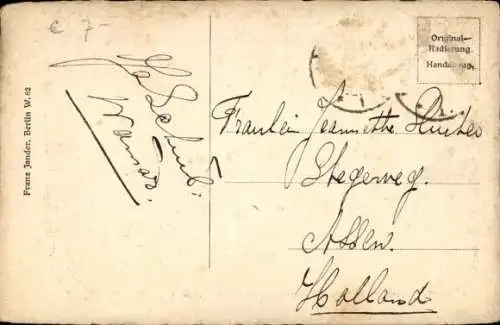 C 7-
Original-
Radierung.
Handabzug.
Franz Jander, Berlin W. 62
Fräulein Jeannette
Stegerweg.
Assen.
Holland